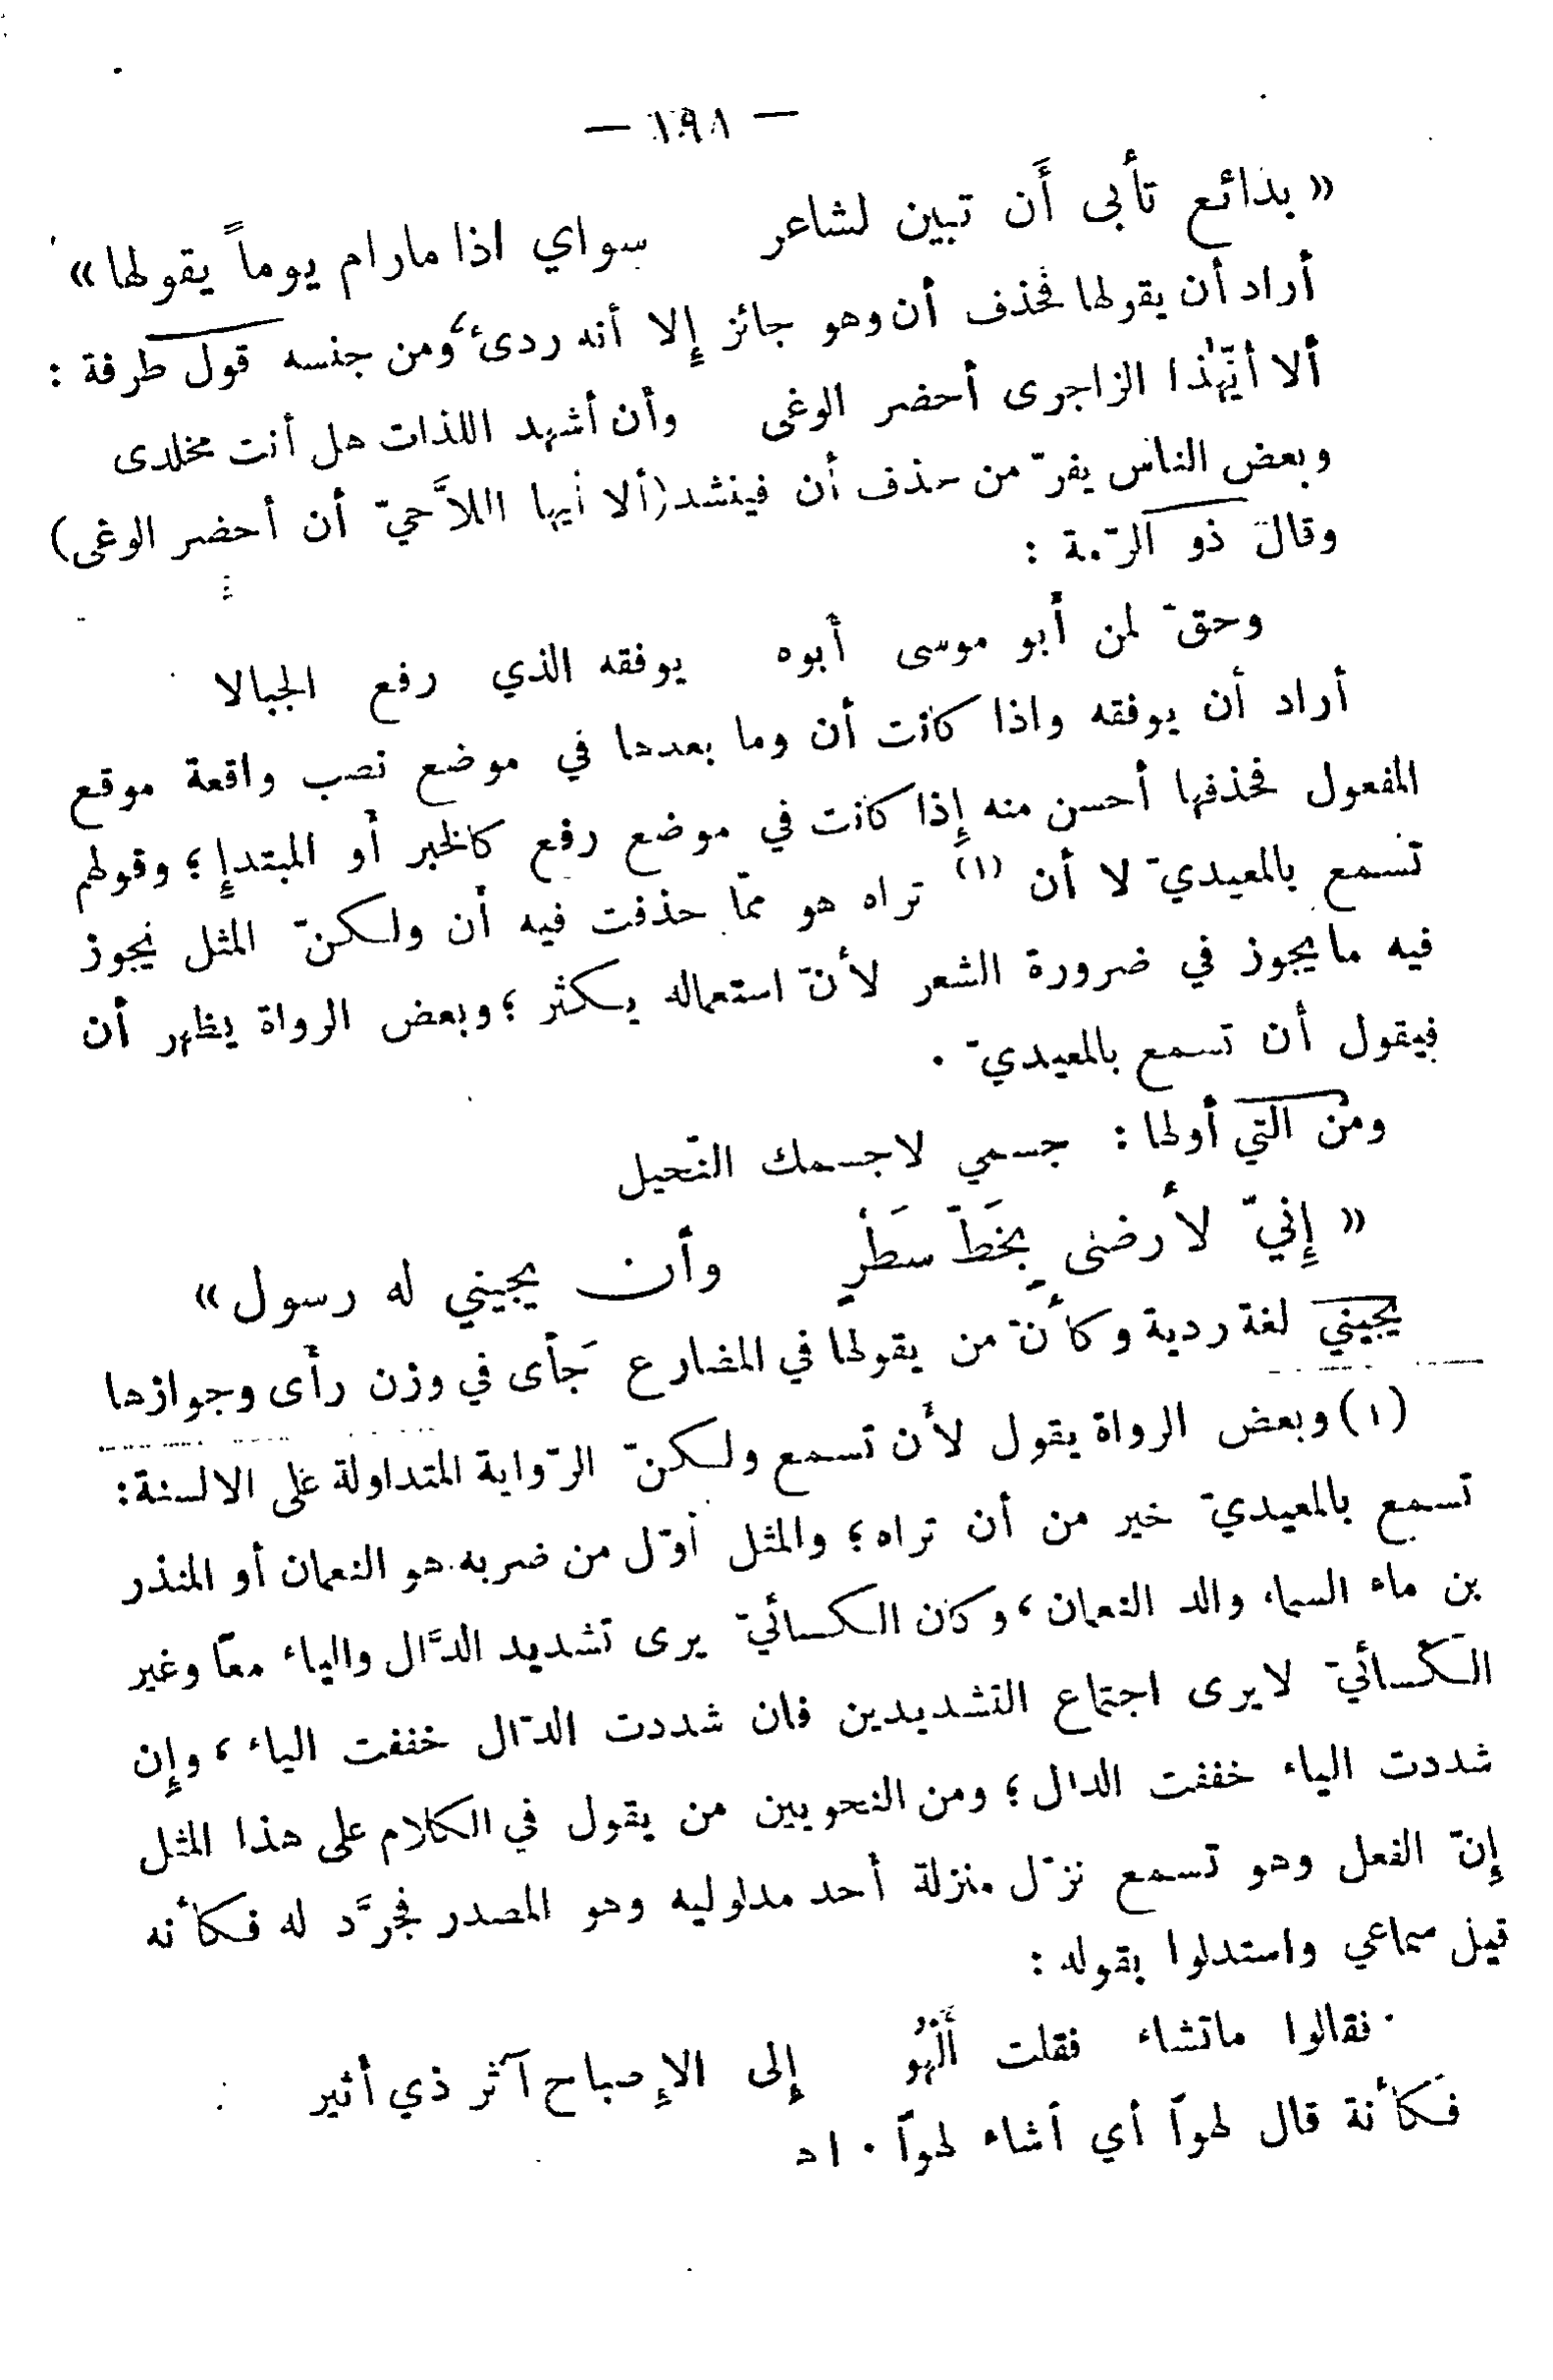 — ١٩٨ —
« بدائع تأبى أَن تبين لشاعر سواي اذا مارام يوماً يقولها »
أراد أن يقولها فحذف أن وهو جائز إلا أنه ردئ، ومن جنسه قول طرفة :
ألا أيّهذا الزاجرى أحضر الوغى وأن أشهد اللذات هل أنت مخلدى
وبعض الناس يفرّ من حذف أن فينشد (ألا أيها اللاَّحيّ أن أحضر الوغى)
وقال ذو الرّمة :
وحقّ لمن أبو موسى أبوه يوفقه الذي رفع الجبالا
أراد أن يوفقه واذا كانت أن وما بعدها في موضع نصب واقعة موقع
المفعول فحذفها أحسن منه إذا كانت في موضع رفع كالخبر أو المبتدإ ؛ وقولهم
تسمع بالمعيديّ لا أن (١) تراه هو ممّا حذفت فيه أن ولكنّ المثل يجوز
فيه مايجوز في ضرورة الشعر لأنّ استعماله يكثر ؛ وبعض الرواة يظهر أن
فيقول أن تسمع بالمعيديّ .
ومن التي أولها : جسمي لاجسمك النّحيل
« إِنيّ لأرضى بِخَطّ سَطْرٍ وأن يجيني له رسول »
يجيني لغة ردية وكأنّ من يقولها في المضارع جَأى في وزن رأى وجوازها
(١) وبعض الرواة يقول لأَن تسمع ولكنّ الرّواية المتداولة على الالسنة :
تسمع بالمعيديّ خير من أن تراه ؛ والمثل أوّل من ضربه هو النعمان أو المنذر
بن ماء السماء والد النعمان ، وكان الكسائيّ يرى تشديد الدَّال والياء معاً وغير
الكسائيّ لايرى اجتماع التشديدين فان شددت الدّال خففت الياء ، وإن
شددت الياء خففت الدال ؛ ومن النحويين من يقول في الكلام على هذا المثل
إنّ الفعل وهو تسمع نزّل منزلة أحد مدلوليه وهو المصدر فجرَّد له فكأنه
قيل سماعي واستدلوا بقوله :
فقالوا ماتشاء فقلت أَلْهُو إلى الإصباح آثر ذي أثير
فكأنة قال لهواً أي أشاء لهواً . اه